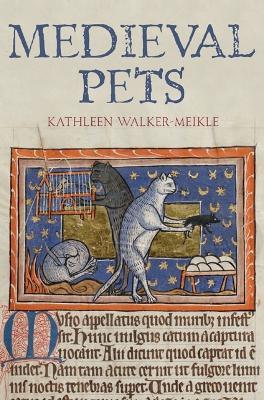 MEDIEVAL
PETS
KATHLEEN WALKER-MEIKLE
Musio appellatus quod muribz infest
sit. Hunc uulgus catum a captura
uocant. Alii dicunt quod captat id ē
uidet. Nam tam acute cernit ut fulgore lumi
nis noctis tenebras superet. Unde a greco uenit